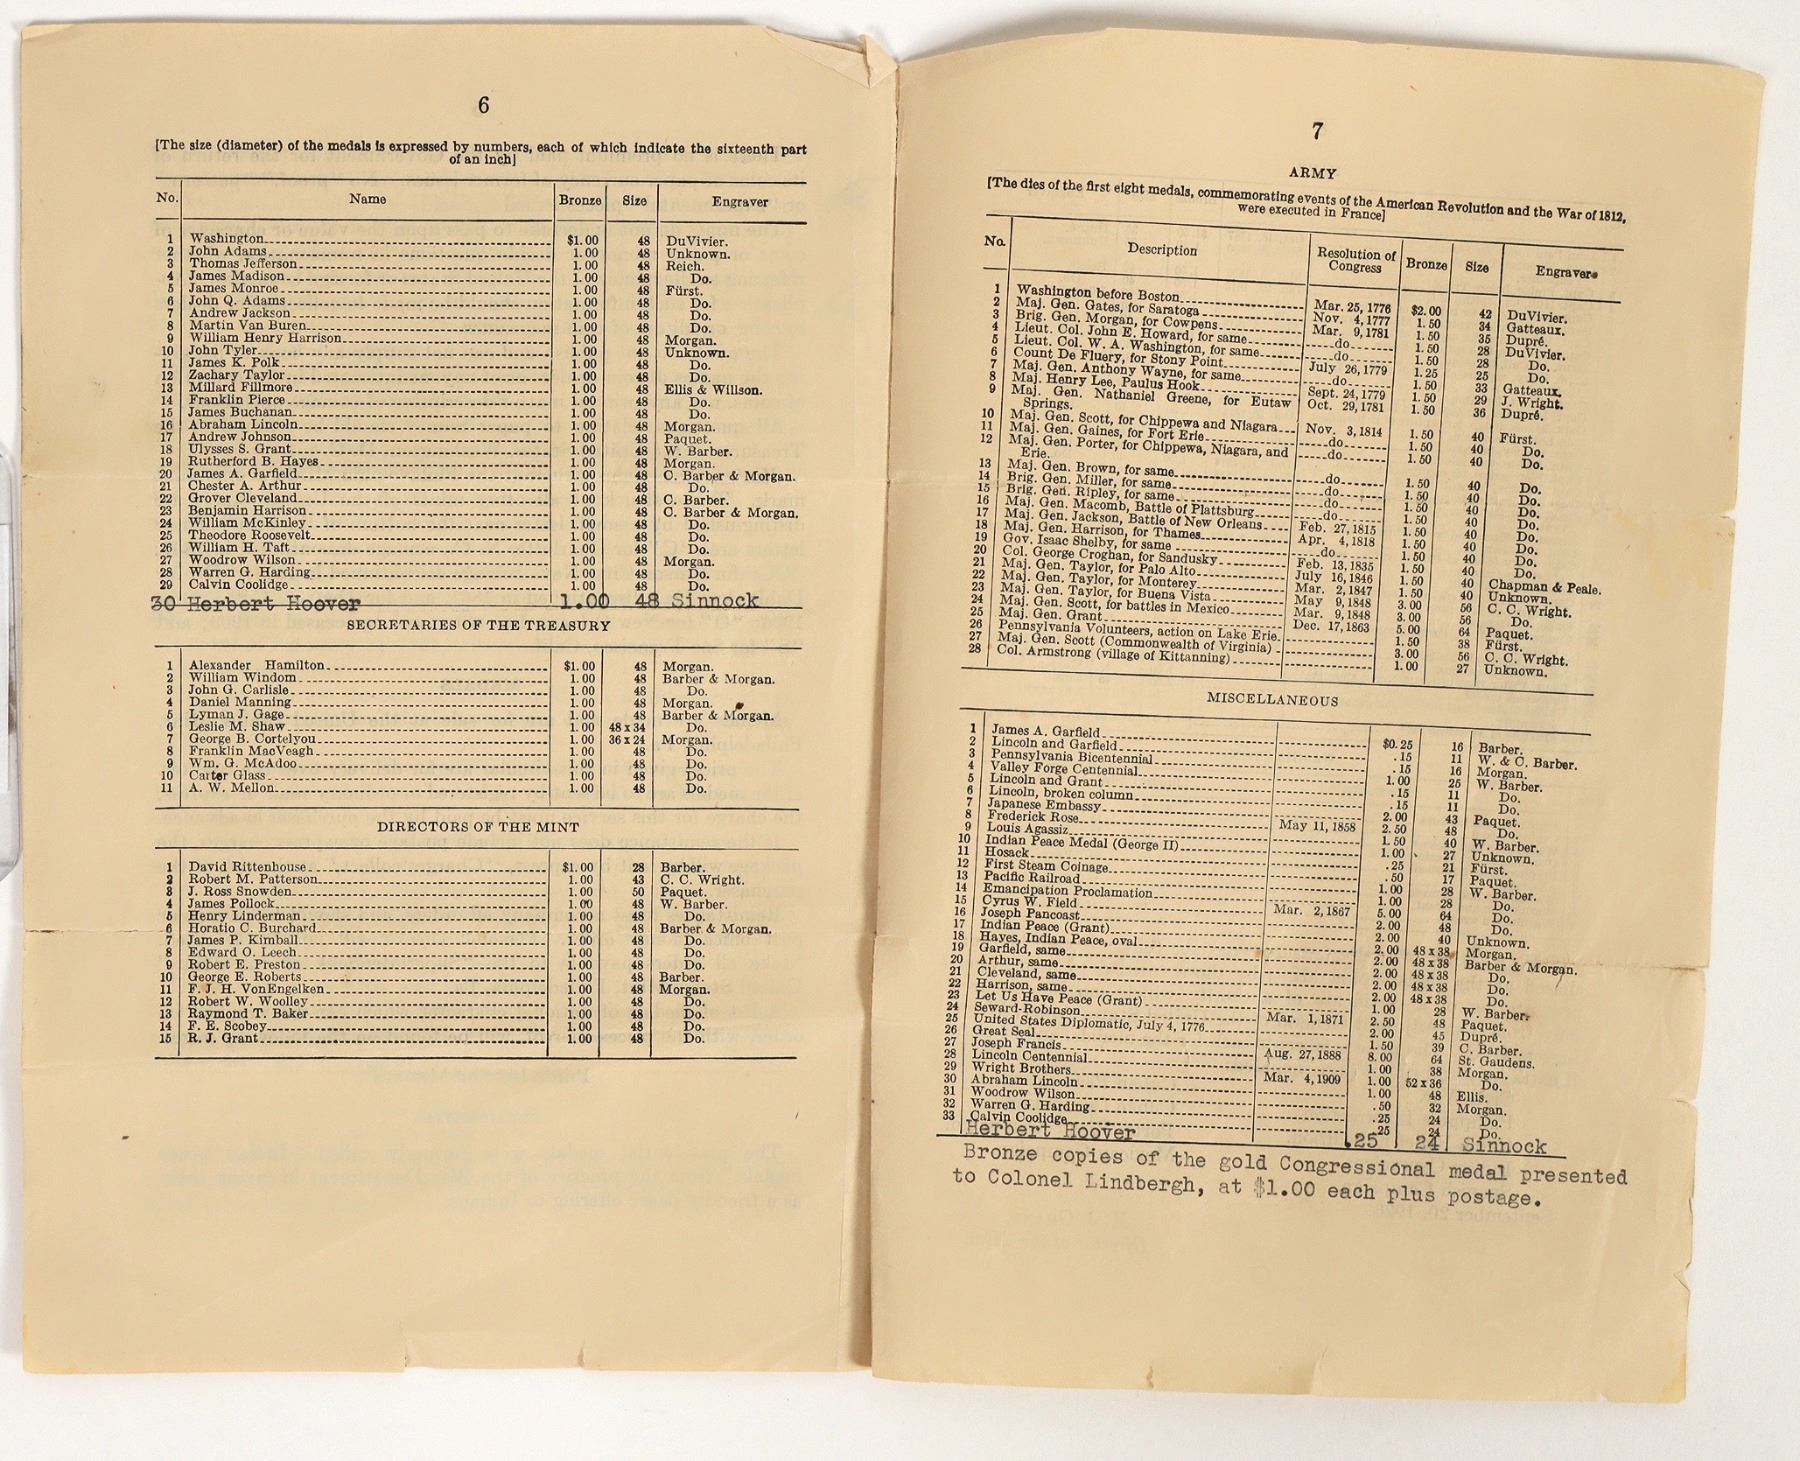 6
[The size (diameter) of the medals is expressed by numbers, each of which indicate the sixteenth part
of an inch]
No. Name Bronze Size Engraver
1 Washington $1.00 48 DuVivier.
2 John Adams 1.00 48 Unknown.
3 Thomas Jefferson 1.00 48 Reich.
4 James Madison 1.00 48 Do.
5 James Monroe 1.00 48 Fürst.
6 John Q. Adams 1.00 48 Do.
7 Andrew Jackson 1.00 48 Do.
8 Martin Van Buren 1.00 48 Do.
9 William Henry Harrison 1.00 48 Morgan.
10 John Tyler 1.00 48 Unknown.
11 James K. Polk 1.00 48 Do.
12 Zachary Taylor 1.00 48 Do.
13 Millard Fillmore 1.00 48 Ellis & Willson.
14 Franklin Pierce 1.00 48 Do.
15 James Buchanan 1.00 48 Do.
16 Abraham Lincoln 1.00 48 Morgan.
17 Andrew Johnson 1.00 48 Paquet.
18 Ulysses S. Grant 1.00 48 W. Barber.
19 Rutherford B. Hayes 1.00 48 Morgan.
20 James A. Garfield 1.00 48 C. Barber & Morgan.
21 Chester A. Arthur 1.00 48 Do.
22 Grover Cleveland 1.00 48 C. Barber.
23 Benjamin Harrison 1.00 48 C. Barber & Morgan.
24 William McKinley 1.00 48 Do.
25 Theodore Roosevelt 1.00 48 Do.
26 William H. Taft 1.00 48 Do.
27 Woodrow Wilson 1.00 48 Morgan.
28 Warren G. Harding 1.00 48 Do.
29 Calvin Coolidge 1.00 48 Do.
30 Herbert Hoover 1.00 48 Sinnock
SECRETARIES OF THE TREASURY
1 Alexander Hamilton $1.00 48 Morgan.
2 William Windom 1.00 48 Barber & Morgan.
3 John G. Carlisle 1.00 48 Do.
4 Daniel Manning 1.00 48 Morgan.
5 Lyman J. Gage 1.00 48 Barber & Morgan.
6 Leslie M. Shaw 1.00 48 x 34 Do.
7 George B. Cortelyou 1.00 36 x 24 Morgan.
8 Franklin MacVeagh 1.00 48 Do.
9 Wm. G. McAdoo 1.00 48 Do.
10 Carter Glass 1.00 48 Do.
11 A. W. Mellon 1.00 48 Do.
DIRECTORS OF THE MINT
1 David Rittenhouse $1.00 28 Barber.
2 Robert M. Patterson 1.00 43 C. C. Wright.
3 J. Ross Snowden 1.00 50 Paquet.
4 James Pollock 1.00 48 W. Barber.
5 Henry Linderman 1.00 48 Do.
6 Horatio C. Burchard 1.00 48 Barber & Morgan.
7 James P. Kimball 1.00 48 Do.
8 Edward O. Leech 1.00 48 Do.
9 Robert E. Preston 1.00 48 Do.
10 George E. Roberts 1.00 48 Barber.
11 F. J. H. VonEngelken 1.00 48 Morgan.
12 Robert W. Woolley 1.00 48 Do.
13 Raymond T. Baker 1.00 48 Do.
14 F. E. Scobey 1.00 48 Do.
15 R. J. Grant 1.00 48 Do.
7
ARMY
[The dies of the first eight medals, commemorating events of the American Revolution and the War of 1812,
were executed in France]
No. Description Resolution of Congress Bronze Size Engraver
1 Washington before Boston Mar. 25, 1776 $2.00 42 DuVivier.
2 Maj. Gen. Gates, for Saratoga Nov. 4, 1777 1.50 34 Gatteaux.
3 Brig. Gen. Morgan, for Cowpens Mar. 9, 1781 1.50 35 Dupré.
4 Lieut. Col. John E. Howard, for same do 1.50 28 DuVivier.
5 Lieut. Col. W. A. Washington, for same do 1.50 28 Do.
6 Count De Fluery, for Stony Point July 26, 1779 1.25 25 Do.
7 Maj. Gen. Anthony Wayne, for same do 1.50 33 Gatteaux.
8 Maj. Henry Lee, Paulus Hook Sept. 24, 1779 1.50 29 J. Wright.
9 Maj. Gen. Nathaniel Greene, for Eutaw Oct. 29, 1781 1.50 36 Dupré.
Springs.
10 Maj. Gen. Scott, for Chippewa and Niagara Nov. 3, 1814 1.50 40 Fürst.
11 Maj. Gen. Gaines, for Fort Erie do 1.50 40 Do.
12 Maj. Gen. Porter, for Chippewa, Niagara, and do 1.50 40 Do.
Erie.
13 Maj. Gen. Brown, for same do 1.50 40 Do.
14 Brig. Gen. Miller, for same do 1.50 40 Do.
15 Brig. Gen. Ripley, for same do 1.50 40 Do.
16 Maj. Gen. Macomb, Battle of Plattsburg do 1.50 40 Do.
17 Maj. Gen. Jackson, Battle of New Orleans Feb. 27, 1815 1.50 40 Do.
18 Maj. Gen. Harrison, for Thames Apr. 4, 1818 1.50 40 Do.
19 Gov. Isaac Shelby, for same do 1.50 40 Do.
20 Col. George Croghan, for Sandusky Feb. 13, 1835 1.50 40 Do.
21 Maj. Gen. Taylor, for Palo Alto July 16, 1846 1.50 40 Chapman & Peale.
22 Maj. Gen. Taylor, for Monterey Mar. 2, 1847 1.50 40 Unknown.
23 Maj. Gen. Taylor, for Buena Vista May 9, 1848 3.00 56 C. C. Wright.
24 Maj. Gen. Scott, for battles in Mexico Mar. 9, 1848 3.00 56 Do.
25 Maj. Gen. Grant Dec. 17, 1863 5.00 64 Paquet.
26 Pennsylvania Volunteers, action on Lake Erie 1.50 38 Fürst.
27 Maj. Gen. Scott (Commonwealth of Virginia) 3.00 56 C. C. Wright.
28 Col. Armstrong (village of Kittanning) 1.00 27 Unknown.
MISCELLANEOUS
1 James A. Garfield $0.25 16 Barber.
2 Lincoln and Garfield .15 11 W. & C. Barber.
3 Pennsylvania Bicentennial .15 16 Morgan.
4 Valley Forge Centennial 1.00 25 W. Barber.
5 Lincoln and Grant .15 11 Do.
6 Lincoln, broken column .15 11 Do.
7 Japanese Embassy 2.00 43 Paquet.
8 Frederick Rose May 11, 1858 2.50 48 Do.
9 Louis Agassiz 1.50 40 W. Barber.
10 Indian Peace Medal (George II) 1.00 27 Unknown.
11 Hosack .25 21 Fürst.
12 First Steam Coinage .50 17 Paquet.
13 Pacific Railroad 1.00 28 W. Barber.
14 Emancipation Proclamation 1.00 28 Do.
15 Cyrus W. Field Mar. 2, 1867 5.00 64 Do.
16 Joseph Pancoast 2.00 48 Do.
17 Indian Peace (Grant) 2.00 40 Unknown.
18 Hayes, Indian Peace, oval 2.00 48 x 38 Morgan.
19 Garfield, same 2.00 48 x 38 Barber & Morgan.
20 Arthur, same 2.00 48 x 38 Do.
21 Cleveland, same 2.00 48 x 38 Do.
22 Harrison, same 2.00 48 x 38 Do.
23 Let Us Have Peace (Grant) 1.00 28 W. Barber.
24 Seward-Robinson Mar. 1, 1871 2.50 48 Paquet.
25 United States Diplomatic, July 4, 1776 2.00 45 Dupré.
26 Great Seal 1.50 39 C. Barber.
27 Joseph Francis Aug. 27, 1888 8.00 64 St. Gaudens.
28 Lincoln Centennial 1.00 38 Morgan.
29 Wright Brothers Mar. 4, 1909 1.00 52 x 36 Do.
30 Abraham Lincoln 1.00 48 Ellis.
31 Woodrow Wilson .50 32 Morgan.
32 Warren G. Harding .25 24 Do.
33 Calvin Coolidge .25 24 Do.
Herbert Hoover .25 24 Sinnock
Bronze copies of the gold Congressional medal presented
to Colonel Lindbergh, at $1.00 each plus postage.